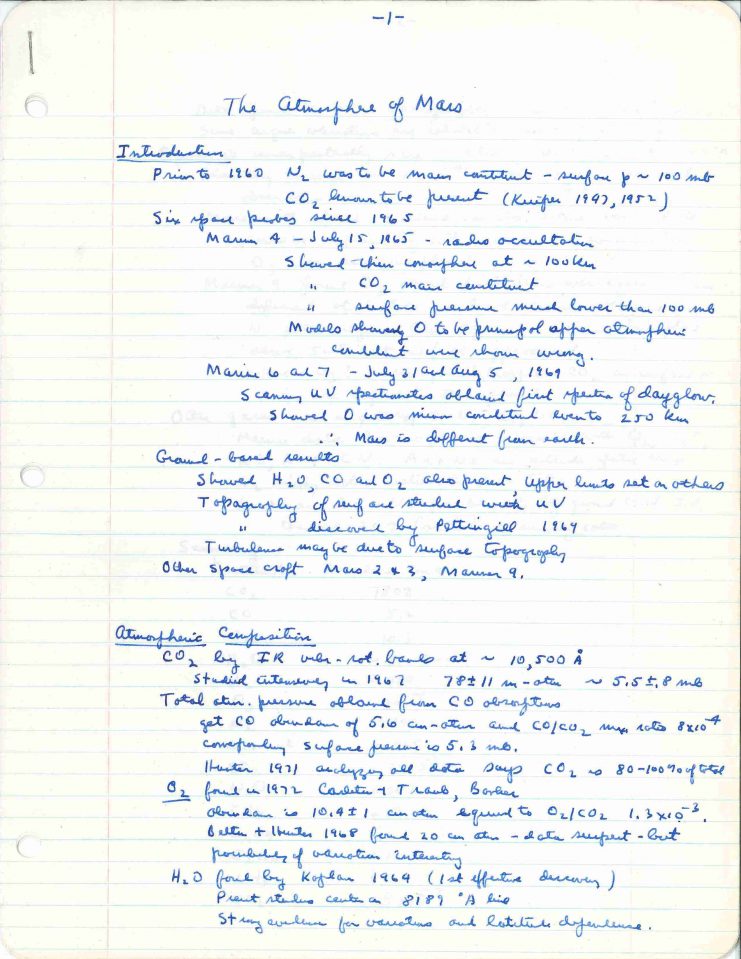 -1-
The Atmosphere of Mars
Introduction
Prior to 1960 N2 was to be main constituent - surface p ~ 100 mb
CO2 known to be present (Kuiper 1947, 1952)
Six space probes since 1965
Mariner 4 - July 15, 1965 - radio occultation
Showed thin ionosphere at ~ 100 km
" CO2 main constituent
" surface pressure much lower than 100 mb
Models showing O to be principal upper atmospheric
constituent were shown wrong.
Marine 6 and 7 - July 31 and Aug 5, 1969
Scanning UV spectrometer obtained first spectra of dayglow.
Showed O was minor constituent even to 250 km
∴ Mars is different from earth.
Ground-based results
Showed H2O, CO and O2 also present, upper limits set on others
Topography of surface studied with UV
" discovered by Pettingill 1969
Turbulence may be due to surface topography
Other space craft Mars 2 & 3, Mariner 9.
Atmospheric Composition
CO2 by IR vibr-rot. bands at ~ 10,500 Å
Studied intensively in 1967 78±11 m-atm ~ 5.5±.8 mb
Total atm. pressure obtained from CO absorptions
get CO abundance of 5.6 cm-atm and CO/CO2 ratio 8x10-4
corresponding surface pressure is 5.3 mb.
Hunten 1971 analyzing all data says CO2 is 80-100% of total
O2 found in 1972 Carleton & Traub, Barker
abundance is 10.4±1 cm atm O2/CO2 1.3x10-3.
Belton + Hunten 1968 found 20 cm atm - data suspect - but
possibility of variation interesting
H2O found by Kaplan 1964 (1st effective discovery)
Present studies center on 8189 °A line
Strong evidence for variations and latitude dependence.